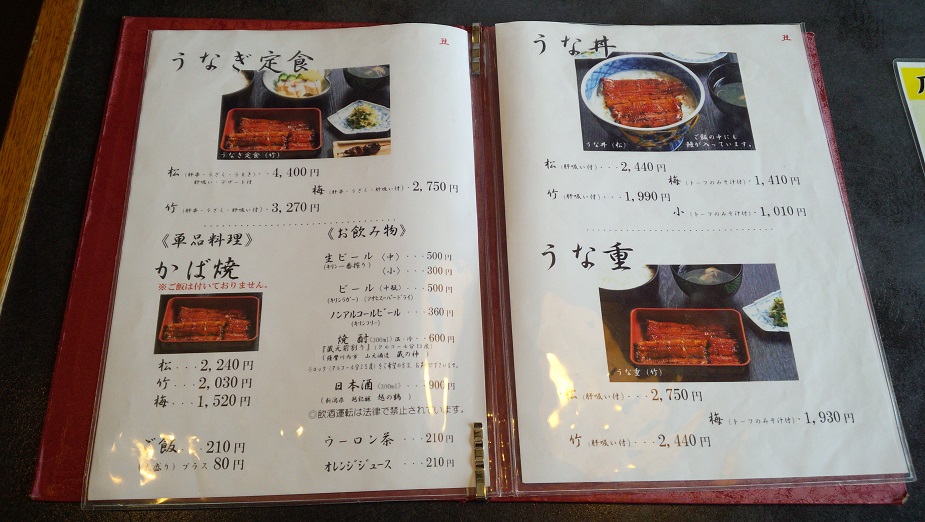 丑
うなぎ定食
うなぎ定食(竹)
松(肝串・うざく・うまき)・・4,400円
肝吸い・デザート付
梅(肝串・うざく・肝吸い付)・2,750円
竹(肝串・うざく・肝吸い付)・3,270円
《単品料理》
かば焼
※ご飯は付いておりません。
松...2,240円
竹...2,030円
梅...1,520円
ご飯...210円
盛り)プラス80円
《お飲み物》
生ビール(中)...500円
(キリン一番搾り)(小)...300円
ビール(中瓶)...500円
(キリンラガー)(アサヒスーパードライ)
ノンアルコールビール...360円
(キリンフリー)
焼酎(300ml)温・冷・・600円
『蔵元前割り』(アルコール分
(薩摩川内市 山元酒造 蔵の神)
日本酒(300ml)...900円
(新潟県 越の鶴)
◎飲酒運転は法律で禁止されています。
ウーロン茶...210円
オレンジジュース...210円
丑
うな丼
うな丼(松)
ご飯の中にも
鰻が入っています。
松(肝吸い付)...2,440円
梅(トーフのみそ汁付)・1,410円
竹(肝吸い付)...1,990円
小(トーフのみそ汁付)・1,010円
うな重
うな重(竹)
松(肝吸い付)...2,750円
梅(トーフのみそ汁付)・1,930円
竹(肝吸い付)...2,440円